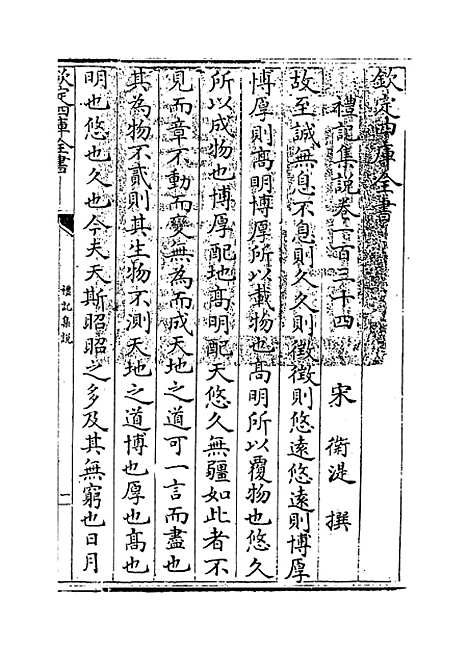 欽定四庫全書
禮記集說卷一百三十四
宋　衛湜　撰
故至誠無息不息則久久則徵徵則悠遠悠遠則博厚
博厚則髙明博厚所以載物也髙明所以覆物也悠久
所以成物也博厚配地髙明配天悠久無疆如此者不
見而章不動而變無為而成天地之道可一言而盡也
其為物不貳則其生物不測天地之道博也厚也髙也
明也悠也久也今夫天斯昭昭之多及其無窮也日月
欽定四庫全書
禮記集說